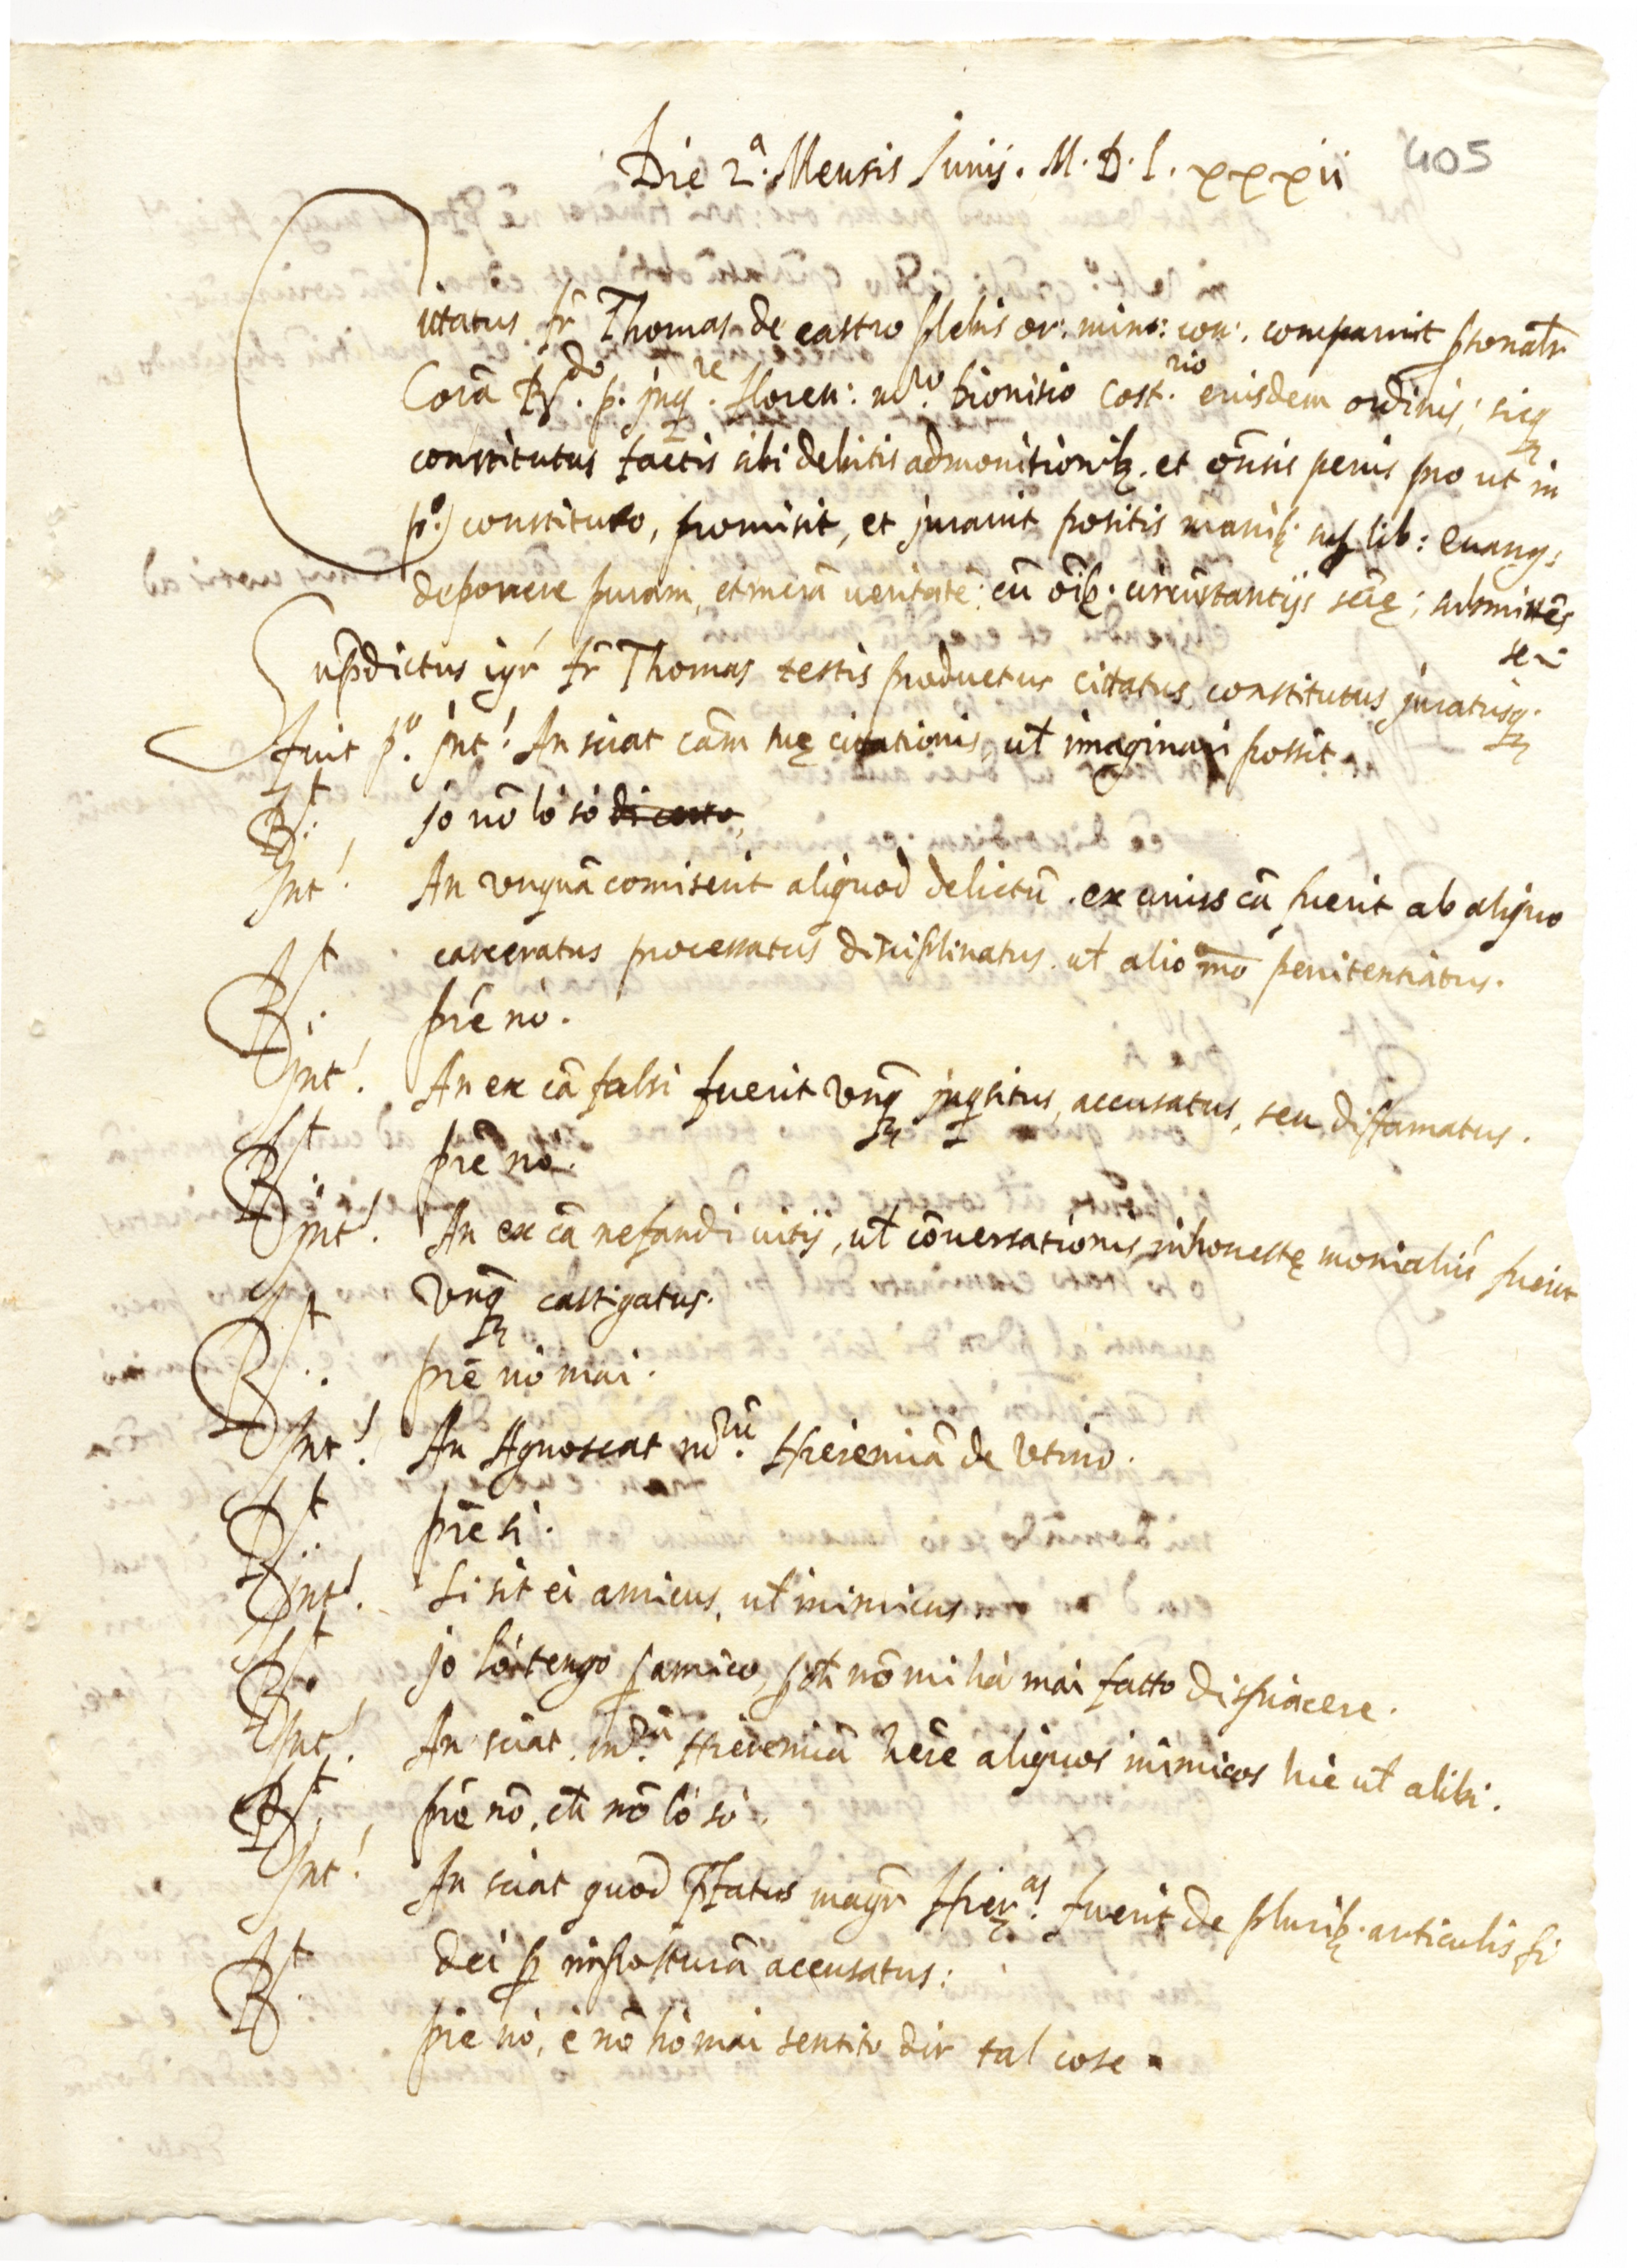 Die 2.ª Mensis Junij. M. D. L. xxxii 405
Citatus fr̃ Thomas de castro plebis or: min: con: comparuit ꝑsonalr̃
Corã R.do p. inq.re floren: m.ro Dionisio Cost.rio eiusdem ordinis; sicq
constitutus factis sibi debitis admonitionibꝫ. et oñsis penis pro ut in
p.º constituto, promisit, et jurauit positis manibꝫ suꝑ lib: euang:
deponere puram, et merã ueritatẽ: cũ oĩbꝫ. circũstantijs suis; submittẽs
se
Supᵭdictus igr̃ fr̃ Thomas testis productus citatus constitutus juratusq.
fuit p.º jnt! An sciat cãm suę citationis, ut̃ imaginari possit.
R.t jo nõ lo sò di certo,
Jnt! An vnquã comiserit aliquod delictũ. ex cuius cã fuerit ab aliquo
carceratus processatus disciplinatus. ut̃ alio mõ penitentiatus.
R.t prẽ nò.
Jnt! An ex cã falsi fuerit vnq̃ jnqsitus, accusatus, seu diffamatus.
R.t prẽ nò.
jnt! An ex cã nefandi uitij, ut̃ cõuersationis inhonestę monialiũ fuerit
vnq̃ castigatus.
R.t prẽ nò mai.
Jnt! An Agnoscat m.rũ Hieremiã de Vtino.
R.t prẽ si.
jnt! Si sit ei amicus, ut̃ inimicus.
R.t jo lo tengo ꝑ amico, ꝑch̃ nõ mi hà mai fatto dispiacere.
Jnt! An sciat m.rũ Hieremiã hẽre aliquos inimicos hic ut̃ alibi.
R.t prẽ nõ, ch̃ nõ lo sò.
Jnt! An sciat quod pr̃fatus magr̃ Hier.as fuerit de pluribꝫ. articulis fi
dei ꝑ imposturã accusatus:
R.t prẽ nò, e nõ hò mai sentito dir tal cose.